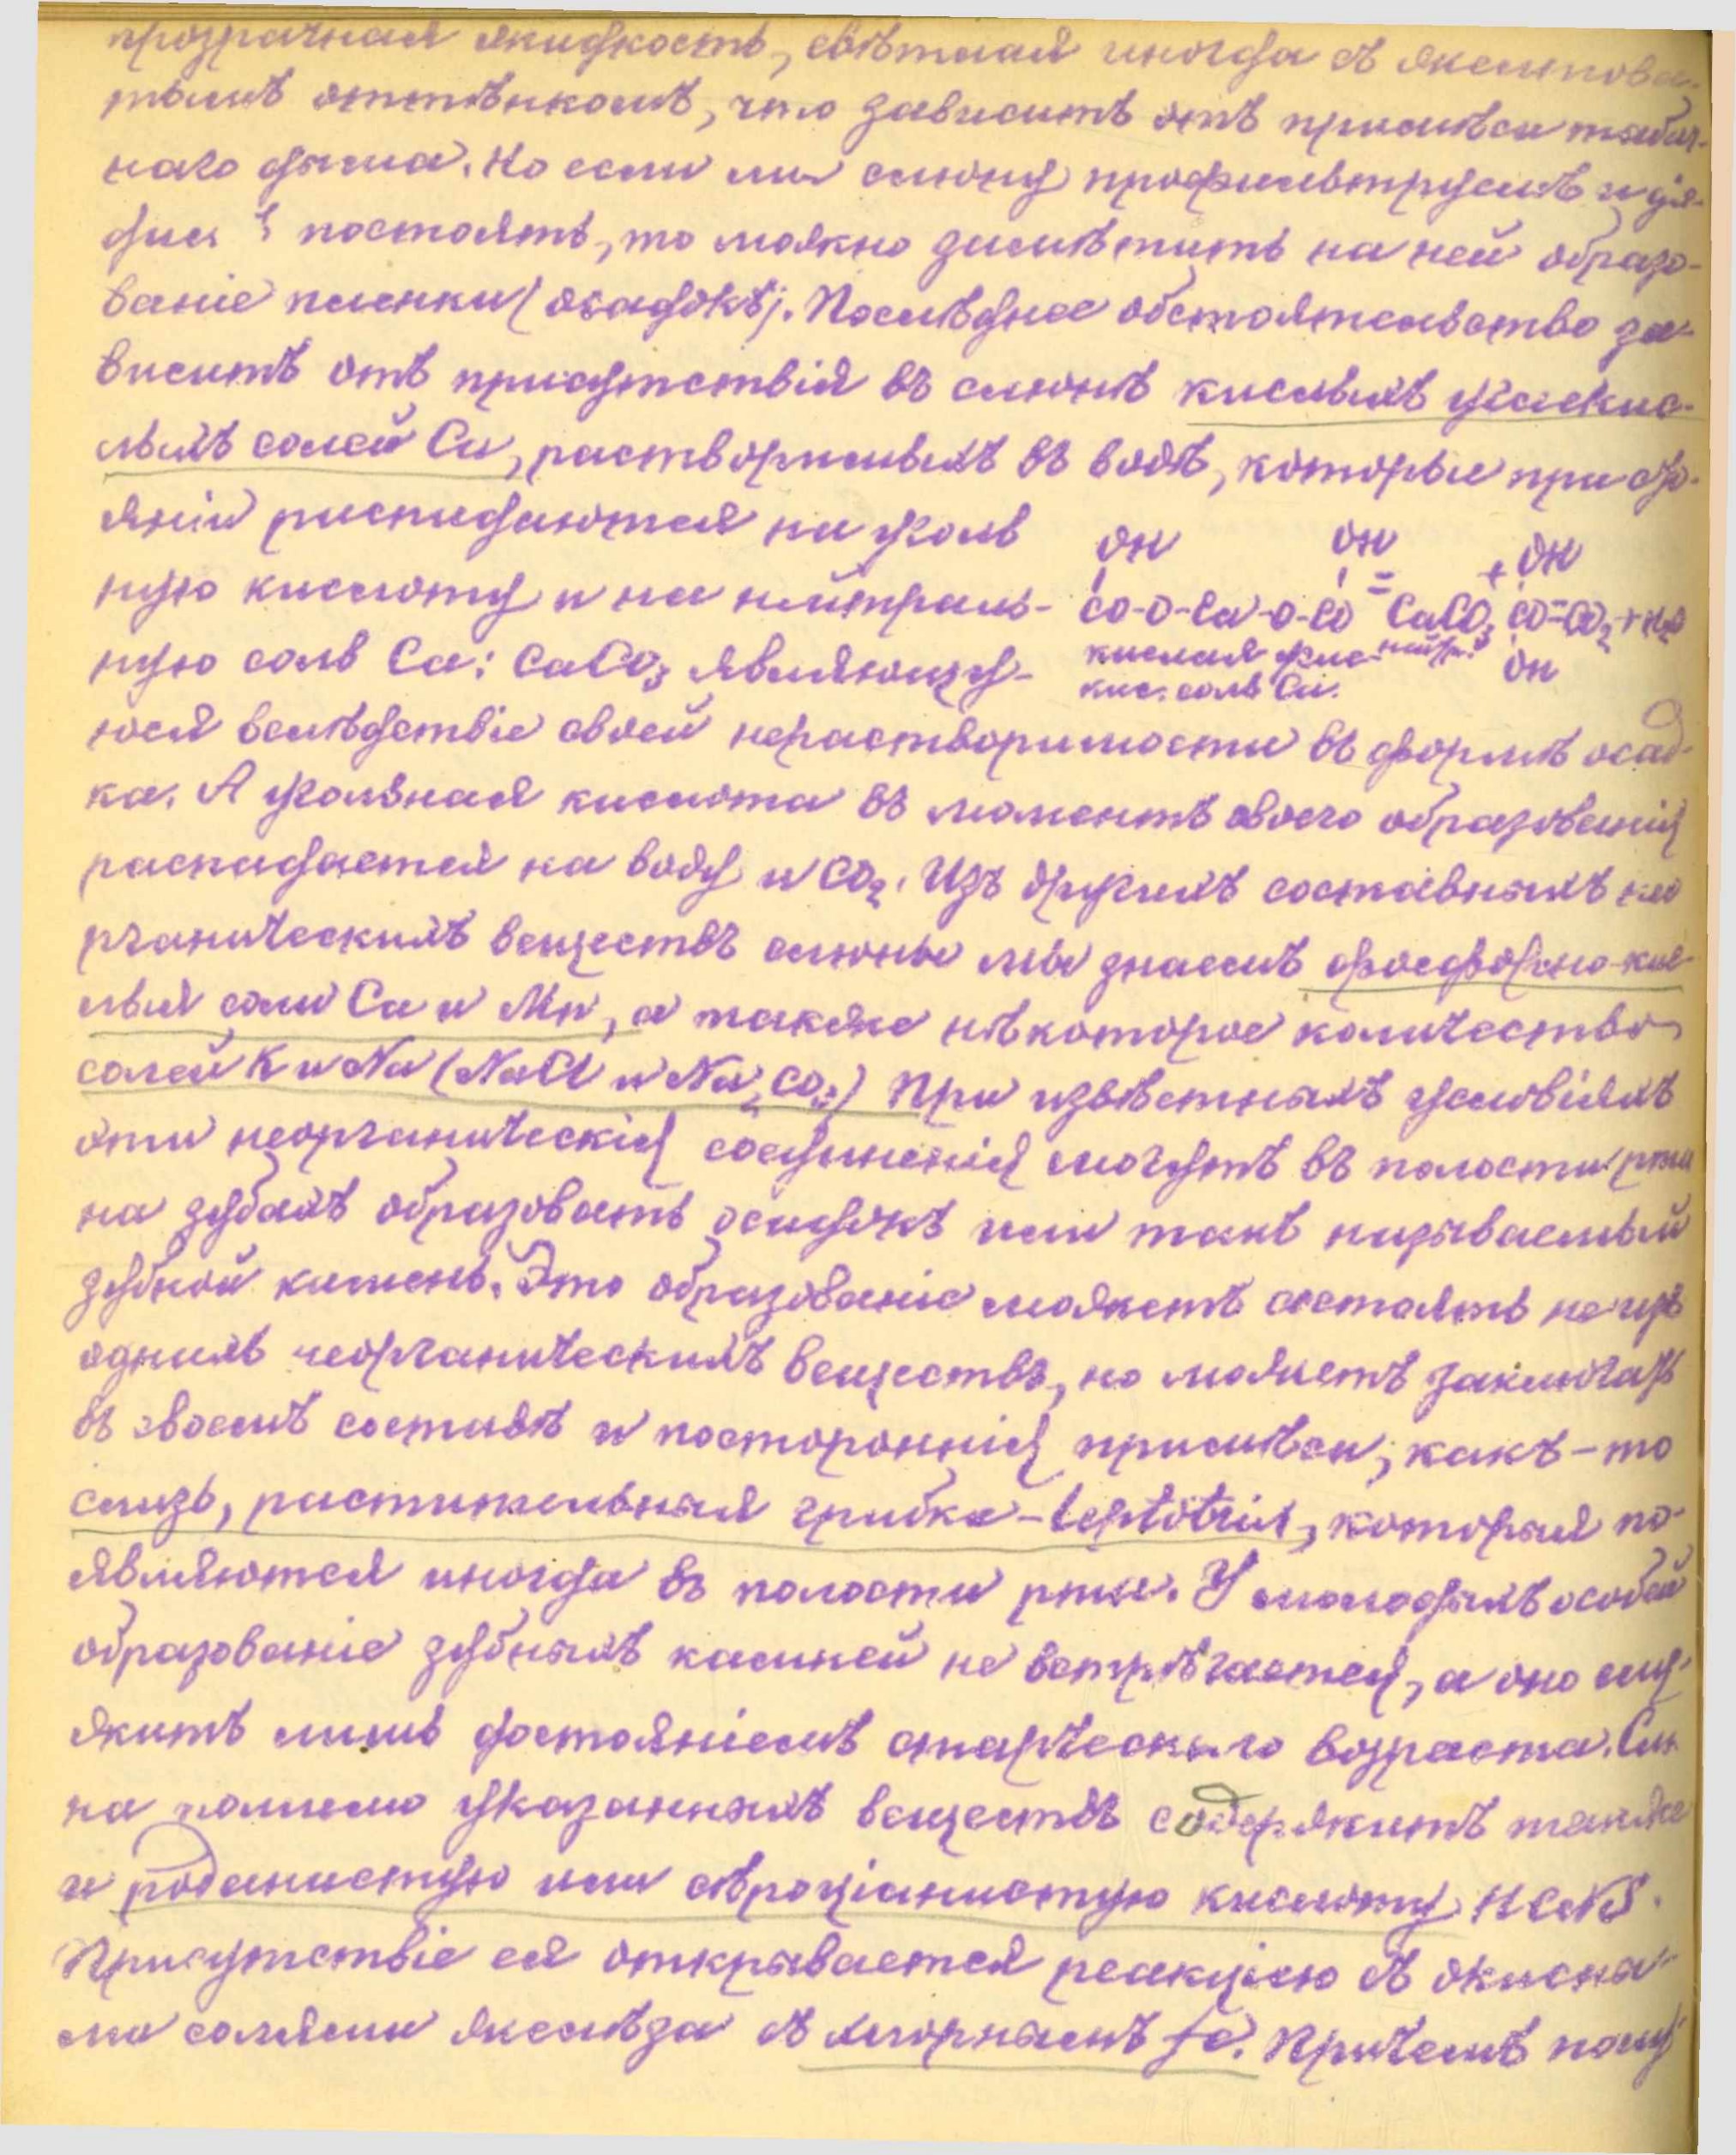 прозрачная жидкость, свѣтлая иногда съ желтова-
тымъ оттѣнкомъ, что зависитъ отъ примѣси табач-
наго дыма. Но если мы слюну профильтруемъ и да-
димъ ей постоять, то можно замѣтить на ней образо-
ваніе пленки (осадокъ). Послѣднее обстоятельство за-
виситъ отъ присутствія въ слюнѣ кислыхъ углекис-
лыхъ солей Ca, растворимыхъ въ водѣ, которые при сто-
яніи распадаются на уголь
ную кислоту и на нейтраль-
ную соль Ca: CaCO3 являющу-
OH OH + OH
CO-O-Ca-O-CO = CaCO3 CO=CO2+H2O
кислая угле- нейтр. OH
кис. соль Ca.
юся вслѣдствіе своей нерастворимости въ формѣ осад-
ка. А угольная кислота въ моментъ своего образованія
распадается на воду и CO2. Изъ другихъ составныхъ нео
рганическихъ веществъ слюны мы знаемъ фосфорно-кис
лыя соли Ca и Mn, а также нѣкоторое количество
солей K и Na (NaCl и Na2CO3) При извѣстныхъ условіяхъ
эти неорганическія соединенія могутъ въ полости рта
на зубахъ образовать осадокъ или такъ называемый
зубной камень. Это образованіе можетъ состоять не изъ
однихъ неорганическихъ веществъ, но можетъ заключать
въ своемъ составѣ и постороннія примѣси, какъ-то
слизь, растительныя грибки-leptotrix, которыя по-
являются иногда въ полости рта. У молодыхъ особей
образованіе зубныхъ камней не встрѣчается, а оно слу-
житъ лишь достояніемъ старческаго возраста. Слю-
на помимо указанныхъ веществъ содержитъ также
и роданистую или сѣроціанистую кислоту HCNS.
Присутствіе ея открывается реакціею съ окисны-
ми солями желѣза съ хлорнымъ Fe. Причемъ полу